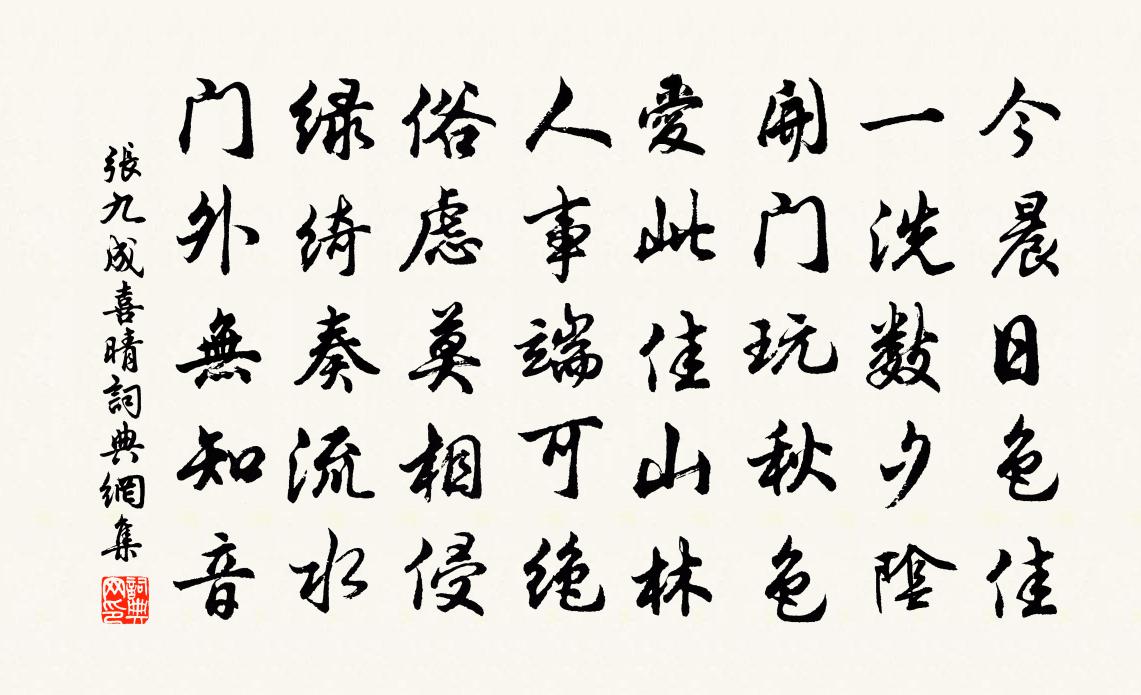 今晨日色佳
一洗数夕陰
開门玩秋色
愛此佳山林
人事端可绝
俗慮莫相侵
绿绮奏流水
门外無知音
張九成喜晴詞典網集
詞典网印